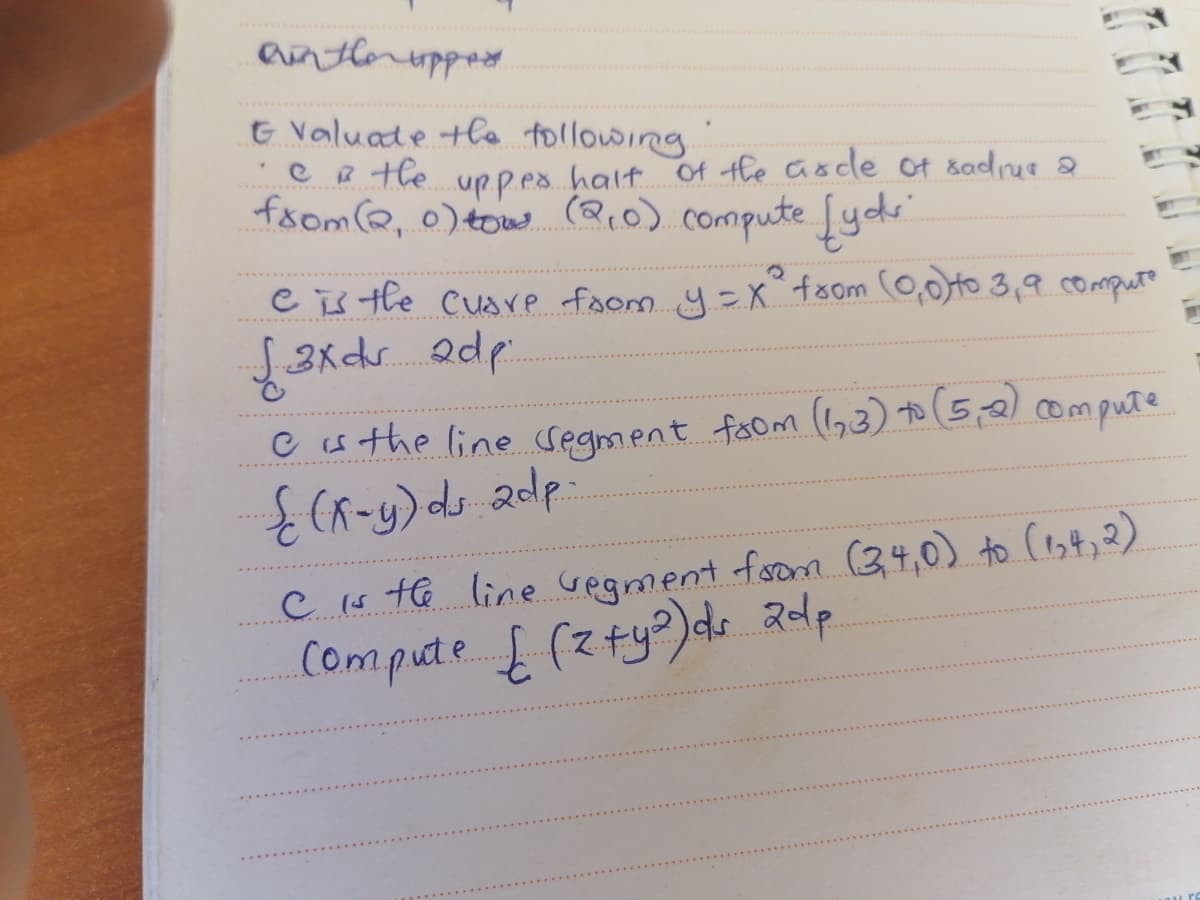 Evaluate the following
C is the upper half of the circle of radius 2
from (2, 0) (2,0) compute ∫_C y ds
C is the curve from y = x² from (0,0) to 3,9 compute
∫_C 3x ds 2dp
C is the line segment from (1,3) to (5,-2) compute
∫_C (x-y) ds 2dp.
C is the line segment from (3,4,0) to (1,4,2)
Compute ∫_C (z+y²) ds 2dp